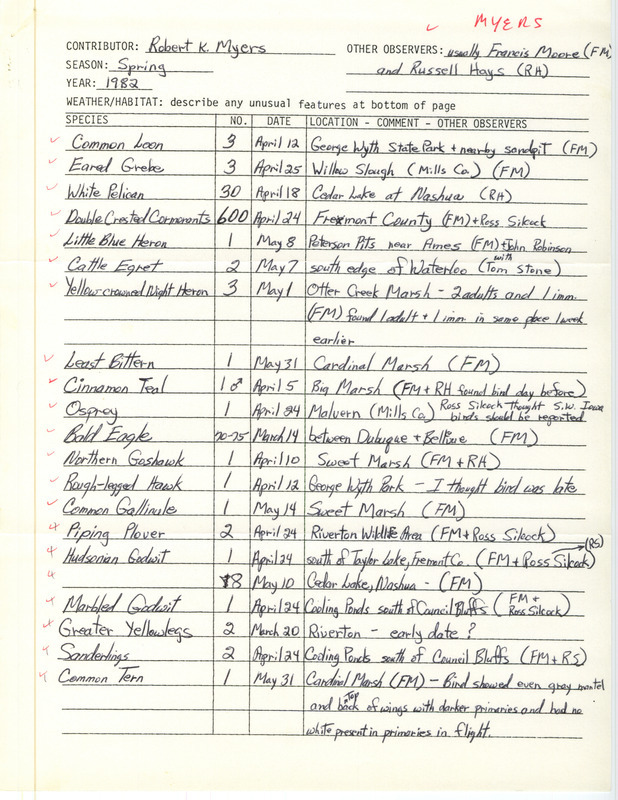 ✓ MYERS
CONTRIBUTOR: Robert K. Myers OTHER OBSERVERS: usually Francis Moore (FM)
SEASON: Spring and Russell Hays (RH)
YEAR: 1982
WEATHER/HABITAT: describe any unusual features at bottom of page
SPECIES NO. DATE LOCATION - COMMENT - OTHER OBSERVERS
✓ Common Loon 3 April 12 George Wyth State Park + nearby sandpit (FM)
✓ Eared Grebe 3 April 25 Willow Slough (Mills Co.) (FM)
✓ White Pelican 30 April 18 Cedar Lake at Nashua (RH)
✓ Double Crested Cormorants 600 April 24 Fremont County (FM) + Ross Silcock
✓ Little Blue Heron 1 May 8 Peterson Pits near Ames (FM) + John Robinson
✓ Cattle Egret 2 May 7 south edge of Waterloo (with Tom Stone)
✓ Yellow-crowned Night Heron 3 May 1 Otter Creek Marsh - 2 adults and 1 imm.
(FM) found 1 adult + 1 imm. in same place 1 week
earlier
✓ Least Bittern 1 May 31 Cardinal Marsh (FM)
✓ Cinnamon Teal 1 ♂ April 5 Big Marsh (FM + RH found bird day before)
✓ Osprey 1 April 24 Malvern (Mills Co.) Ross Silcock thought S.W. Iowa birds should be reported
✓ Bald Eagle 70-75 March 14 between Dubuque + Bellvue (FM)
✓ Northern Goshawk 1 April 10 Sweet Marsh (FM + RH)
✓ Rough-legged Hawk 1 April 12 George Wyth Park - I thought bird was late
✓ Common Gallinule 1 May 14 Sweet Marsh (FM)
Piping Plover 2 April 24 Riverton Wildlife Area (FM + Ross Silcock)
Hudsonian Godwit 1 April 24 south of Taylor Lake, Fremont Co. (FM + Ross Silcock) → (RS)
18 May 10 Cedar Lake, Nashua - (FM)
Marbled Godwit 1 April 24 Cooling Ponds south of Council Bluffs (FM + Ross Silcock)
Greater Yellowlegs 2 March 20 Riverton - early date ?
Sanderlings 2 April 24 Cooling Ponds south of Council Bluffs (FM + RS)
Common Tern 1 May 31 Cardinal Marsh (FM) - Bird showed even gray mantel
and back top of wings with darker primaries and had no
white present in primaries in flight.